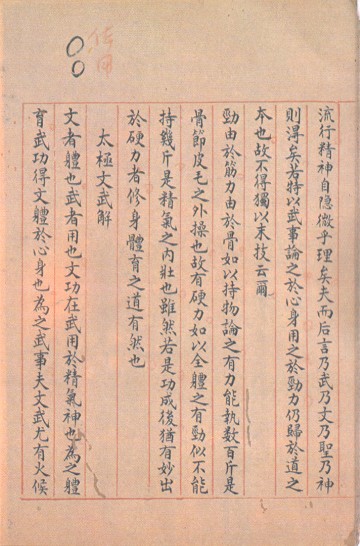 体用
流行精神自隱微乎理矣夫而后言乃武乃文乃聖乃神
則淂矣若特以武事論之於心身用之於勁力仍歸於道之
本也故不得獨以末技云爾
勁由於筋力由於骨如以持物論之有力能執数百斤是
骨節皮毛之外操也故有硬力如以全軆之有勁似不能
持幾斤是精氣之內壯也雖然若是功成後猶有妙出
於硬力者修身體育之道有然也
太極文武解
文者軆也武者用也文功在武用於精氣神也為之軆
育武功得文軆於心身也為之武事夫文武尤有火候